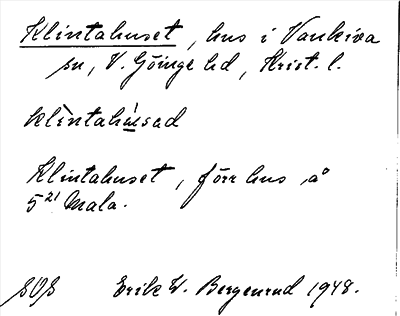 Klintahuset, hus i Vankiva
sn, V. Göinge hd, Krist. l.
klìntahú̱sad
Klintahuset, förr hus å
5²¹ Mala.
SOS Erik W. Bergenrud 1948.